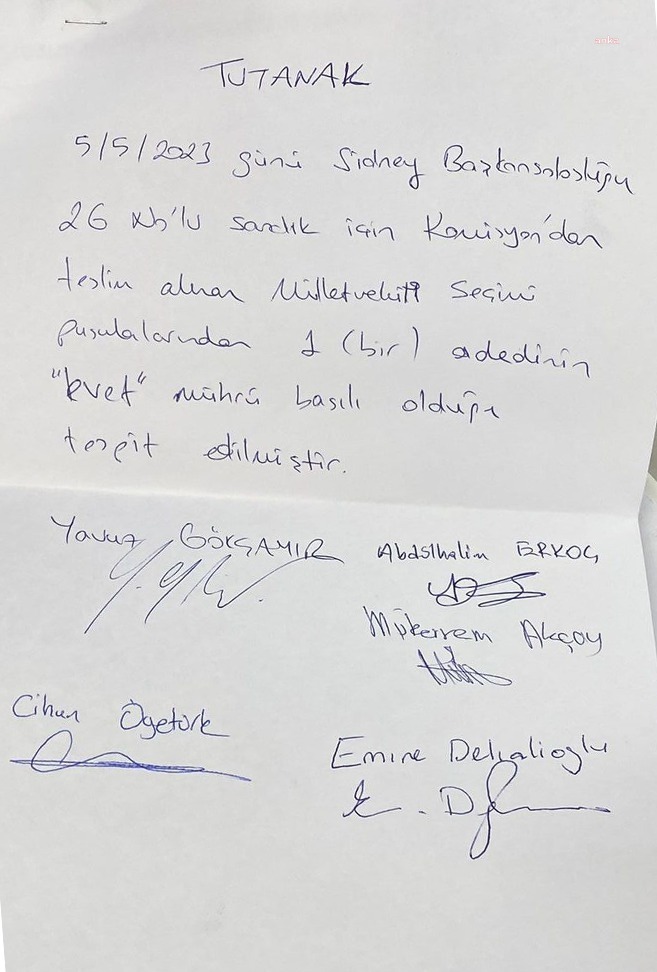 anka
TUTANAK
5/5/2023 günü Sidney Başkonsolosluğu
26 No'lu sandık için Komisyon'dan
teslim alınan Milletvekili Seçimi
pusulalarından 1 (bir) adedinin
"Evet" mührü basılı olduğu
tespit edilmiştir.
Yavuz GÖKÇAMIR Abdulhalim ERKOÇ
Mükerrem Akçoy
Cihan Ögetürk
Emine Delialioglu
E. D